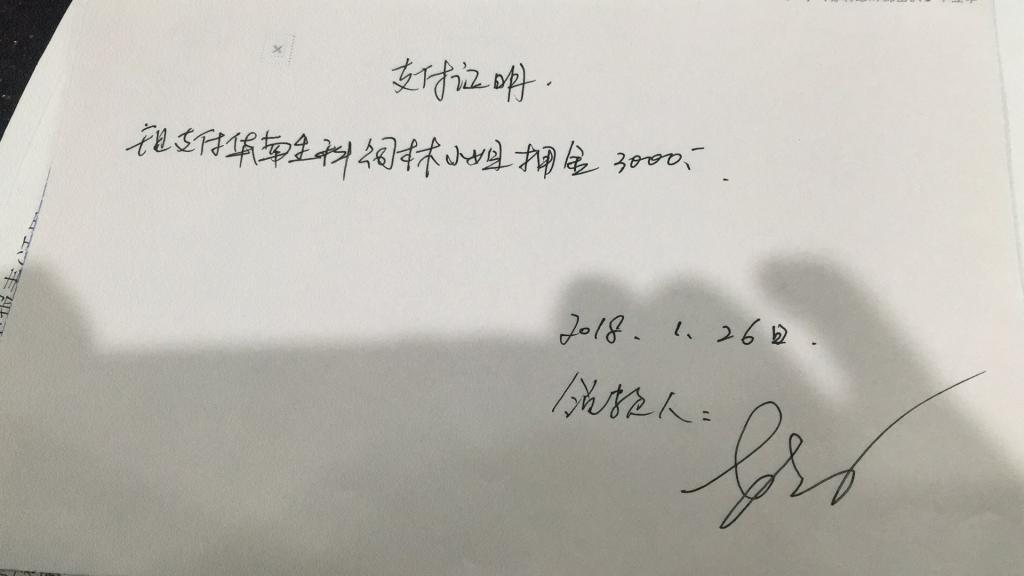 支付证明.
支付华南生科 林小姐押金 3000.-
2018. 1. 26日.
人: